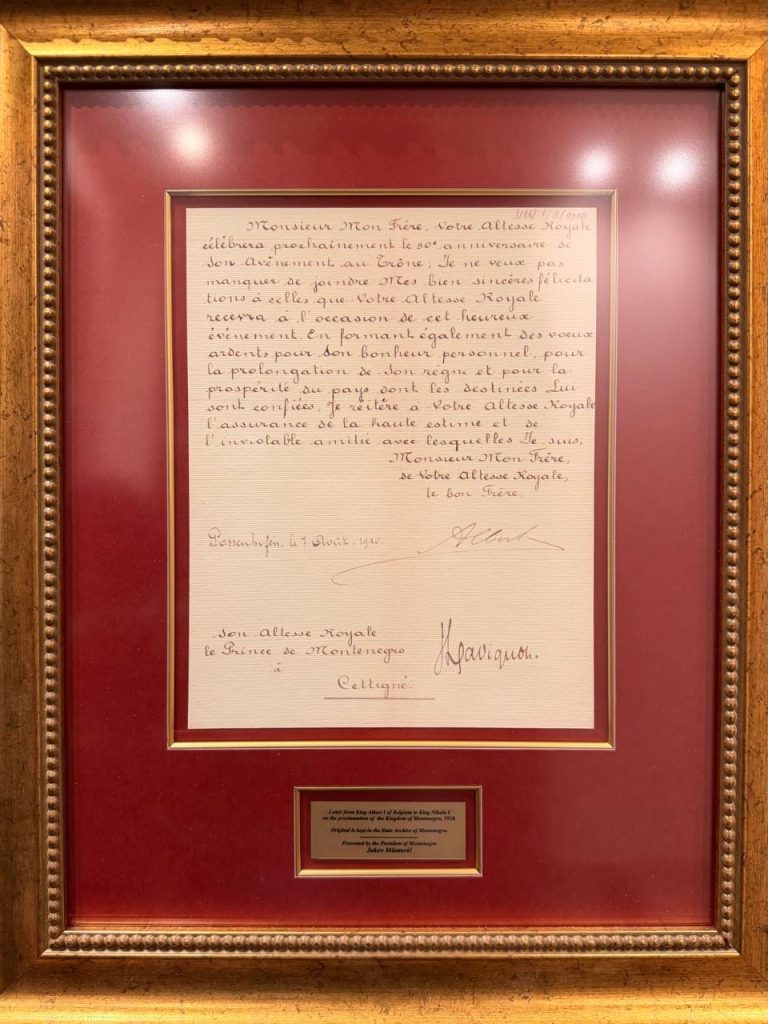 1/3/1910
Monsieur Mon Frère, Votre Altesse Royale
célébrera prochainement le 50e anniversaire de
Son Avènement au Trône. Je ne veux pas
manquer de joindre Mes bien sincères félicita
tions à celles que Votre Altesse Royale
recevra à l'occasion de cet heureux
événement. En formant également des voeux
ardents pour Son bonheur personnel, pour
la prolongation de Son règne et pour la
prospérité du pays dont les destinées Lui
sont confiées, Je réitère à Votre Altesse Royale
l'assurance de la haute estime et de
l'inviolable amitié avec lesquelles Je suis,
Monsieur Mon Frère,
de Votre Altesse Royale,
le bon Frère,
Possenhofen, le 7 Août, 1910.
Albert
Son Altesse Royale
le Prince de Montenegro
à
Cettigné.
Davignon.
Letter from King Albert I of Belgium to King Nikola I
on the proclamation of the Kingdom of Montenegro, 1910.
Original is kept in the State Archive of Montenegro.
Presented by the President of Montenegro
Jakov Milatović